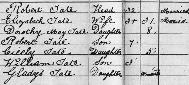 Robert Tate Head 32 Married
Elizabeth Tate Wife 31 Married
Dorothy May Tate Daughter 8
Robert Tate Son 7
Cicely Tate Daughter 5
William Tate Son 3
Gladys Tate Daughter months